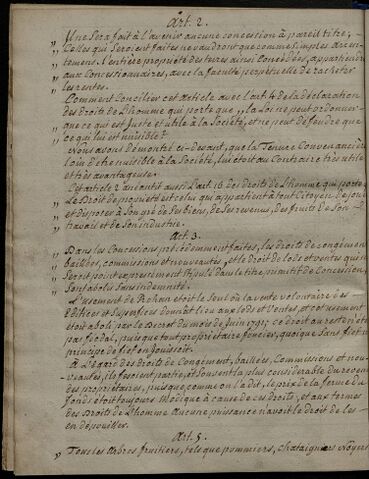 Art. 2.
„ Il ne sera fait à l'avenir aucune concession à pareil titre,
„ Celles qui seroient faites ne vaudront que comme simples arcen-
„ temens. L'entière propriété des terres ainsi concédées, appartiendra
„ aux Concessionnaires, avec la faculté perpétuelle de racheter
„ les rentes.
Comment Concilier cet article avec l'art 4 de la déclaration
des Droits de L'homme qui porte que, la Loi ne peut ordonner
que ce qui est juste et utile à la Société, et ne peut défendre que
ce qui lui est nuisible?
Nous avons démontré ci-devant, que la Tenure Convenancière
loin d'être nuisible à la Société, lui étoit au Contraire très utile
et très avantageuse.
Cet article 2 anéantit aussi L'art. 16 des Droits de L'homme qui porte,
Le Droit de propriété est celui qui appartient à tout Citoyen de jouir
et disposer à son gré de ses biens, de ses revenus, des fruits de Son
travail et de Son industrie.
Art. 3.
„ Dans les Concessions précédemment faites, les droits de congément
„ baillées, commissions et nouveautés, et le droit de lods et ventes qui ne
„ Seroit point expressément stipulé dans le titre primitif de Concession,
„ Sont abolis Sans indemnité.
L'usement de Rohan étoit le Seul où la vente volontaire des
Edifices et Superfices donnât lieu aux lods et Ventes, et cet usement
étoit aboli par le Decret du mois de juin 1791; ce droit au reste n'étoit
pas féodal, puisque tout propriétaire foncier, quoique Sans fief ni
principe de fief en jouissoit.
A L'égard des Droits de Congément, baillées, Commissions et nou-
veautés, ils faisoient partie, et Souvent la plus considerable du revenu
des propriétaires, puisque, comme on l'a dit, le prix de la ferme du
fonds étoit toujours Modique à cause de ces droits, et aux termes
des Droits de L'homme Aucune puissance n'avoit le droit de les
en dépouiller.
Art. 5.
„ Tous les Arbres fruitiers, tels que pommiers, chataigniers Noyers